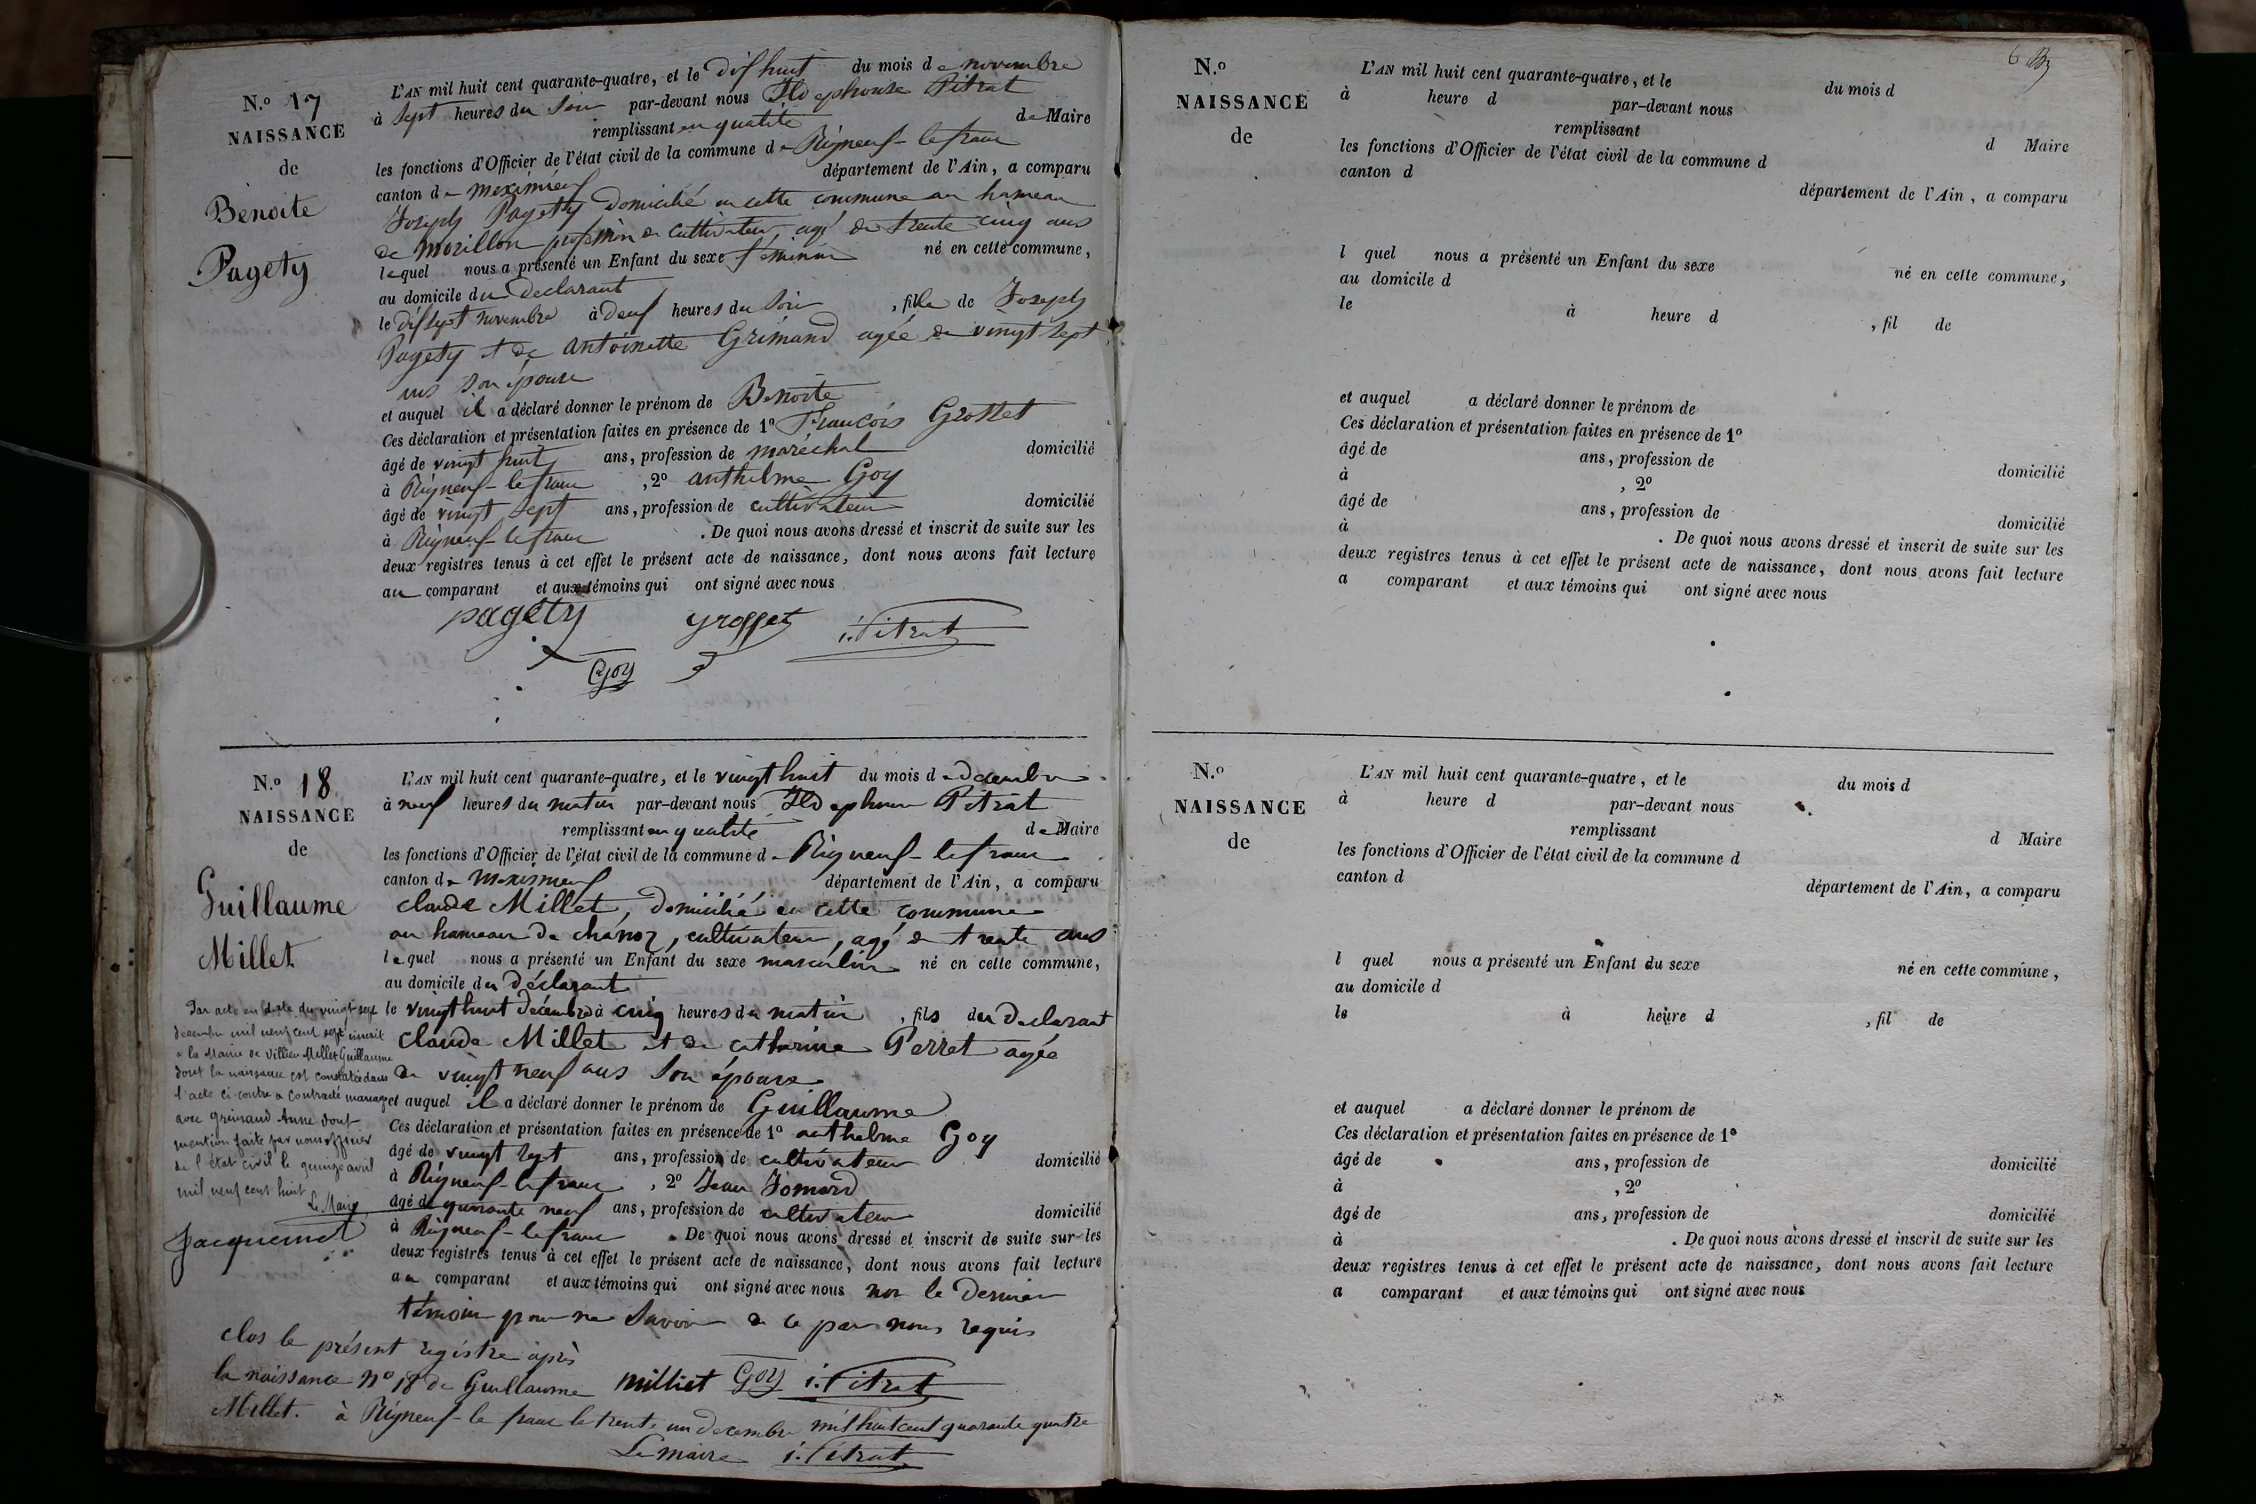 N.o 17
NAISSANCE
de
Benoite
Pagety
L'AN mil huit cent quarante-quatre, et le dix huit du mois de novembre
à sept heures du soir par-devant nous Ildephonse Pitrat
remplissant en qualité de Maire
les fonctions d'Officier de l'état civil de la commune de Rigneux-le franc
canton de meximieux département de l'Ain, a comparu
Joseph Pagety domicilié en cette commune au hameau
de morillon profession de cultivateur, agé de trente cinq ans
lequel nous a présenté un Enfant du sexe féminin né en cette commune,
au domicile du declarant
le dix sept novembre à deux heures du soir, fille de Joseph
Pagety et de antoinette Grimand agée de vingt sept
ans son épouse
et auquel il a déclaré donner le prénom de Benoite
Ces déclaration et présentation faites en présence de 1o François Grosset
âgé de vingt huit ans, profession de maréchal domicilié
à Rigneux-le franc, 2o anthelme Goy
âgé de vingt sept ans, profession de cultivateur domicilié
à Rigneux-le franc. De quoi nous avons dressé et inscrit de suite sur les
deux registres tenus à cet effet le présent acte de naissance, dont nous avons fait lecture
au comparant et aux témoins qui ont signé avec nous
pagety grosset i. Pitrat
Goy
N.o 18
NAISSANCE
de
Guillaume
Millet
L'AN mil huit cent quarante-quatre, et le vingt huit du mois de decembre
à neuf heures du matin par-devant nous Ildephonse Pitrat
remplissant en qualité de Maire
les fonctions d'Officier de l'état civil de la commune de Rigneux-le franc
canton de meximieux département de l'Ain, a comparu
claude Millet, domicilié en cette commune
au hameau de chanoz, cultivateur, agé de trente ans
lequel nous a présenté un Enfant du sexe masculin né en cette commune,
au domicile du déclarant
le vingt huit décembre à cinq heures du matin, fils du declarant
claude Millet et de catherine Perret agée
de vingt neuf ans son épouse
et auquel il a déclaré donner le prénom de Guillaume
Ces déclaration et présentation faites en présence de 1o anthelme Goy
âgé de vingt sept ans, profession de cultivateur domicilié
à Rigneux-le franc, 2o Jean Jomard
âgé de quarante neuf ans, profession de cultivateur domicilié
à Rigneux-le franc. De quoi nous avons dressé et inscrit de suite sur les
deux registres tenus à cet effet le présent acte de naissance, dont nous avons fait lecture
au comparant et aux témoins qui ont signé avec nous non le dernier
témoin pour ne savoir de ce par nous requis
milliet Goy i. Pitrat
Par acte en date du vingt sept
décembre mil neuf cent sept inscrit
à la Mairie de Villieu Millet Guillaume
dont la naissance est constatée dans
l'acte ci-contre a contracté mariage
avec Grimand Anne dont
mention faite par nous officier
de l'état civil le quinze avril
mil neuf cent huit
Le Maire
Jacquemet
clos le présent registre après
la naissance No 18 de Guillaume
Millet. à Rigneux-le franc le trente un decembre mil huit cent quarante quatre
Le maire i. Pitrat
N.o
NAISSANCE
de
L'AN mil huit cent quarante-quatre, et le du mois d
à heure d par-devant nous
remplissant d Maire
les fonctions d'Officier de l'état civil de la commune d
canton d département de l'Ain, a comparu
l quel nous a présenté un Enfant du sexe né en cette commune,
au domicile d
le à heure d , fil de
et auquel a déclaré donner le prénom de
Ces déclaration et présentation faites en présence de 1o
âgé de ans, profession de domicilié
à , 2o
âgé de ans, profession de domicilié
à . De quoi nous avons dressé et inscrit de suite sur les
deux registres tenus à cet effet le présent acte de naissance, dont nous avons fait lecture
a comparant et aux témoins qui ont signé avec nous
N.o
NAISSANCE
de
L'AN mil huit cent quarante-quatre, et le du mois d
à heure d par-devant nous
remplissant d Maire
les fonctions d'Officier de l'état civil de la commune d
canton d département de l'Ain, a comparu
l quel nous a présenté un Enfant du sexe né en cette commune,
au domicile d
le à heure d , fil de
et auquel a déclaré donner le prénom de
Ces déclaration et présentation faites en présence de 1o
âgé de ans, profession de domicilié
à , 2o
âgé de ans, profession de domicilié
à . De quoi nous avons dressé et inscrit de suite sur les
deux registres tenus à cet effet le présent acte de naissance, dont nous avons fait lecture
a comparant et aux témoins qui ont signé avec nous